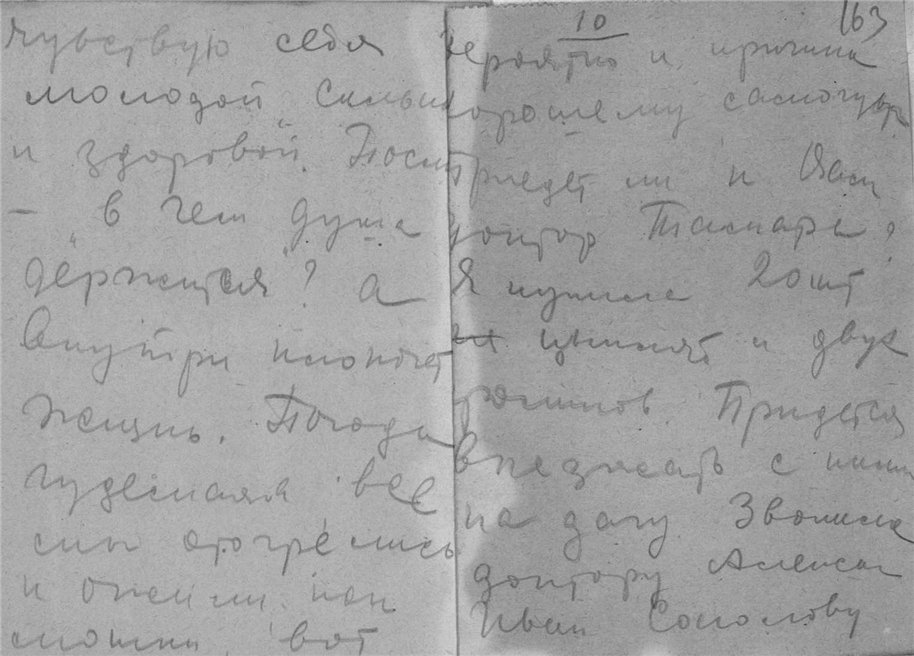 чувствую себя
молодой, сильн
и здоровой. Посм
— „в чем душа
держится"? а
внутри клокочет
жизнь. Погода
чудесная все
мы отогрелись
и ожили как
мошки, вот
10
163
вероятно и причина
хорошему самочув
Приедет ли к Вам
доктор Тамара?
Я купила 20 шт
цыплят и двух
Придется
въезжать с ними
на дачу Звонила
доктору Алексан
Иван Соколову